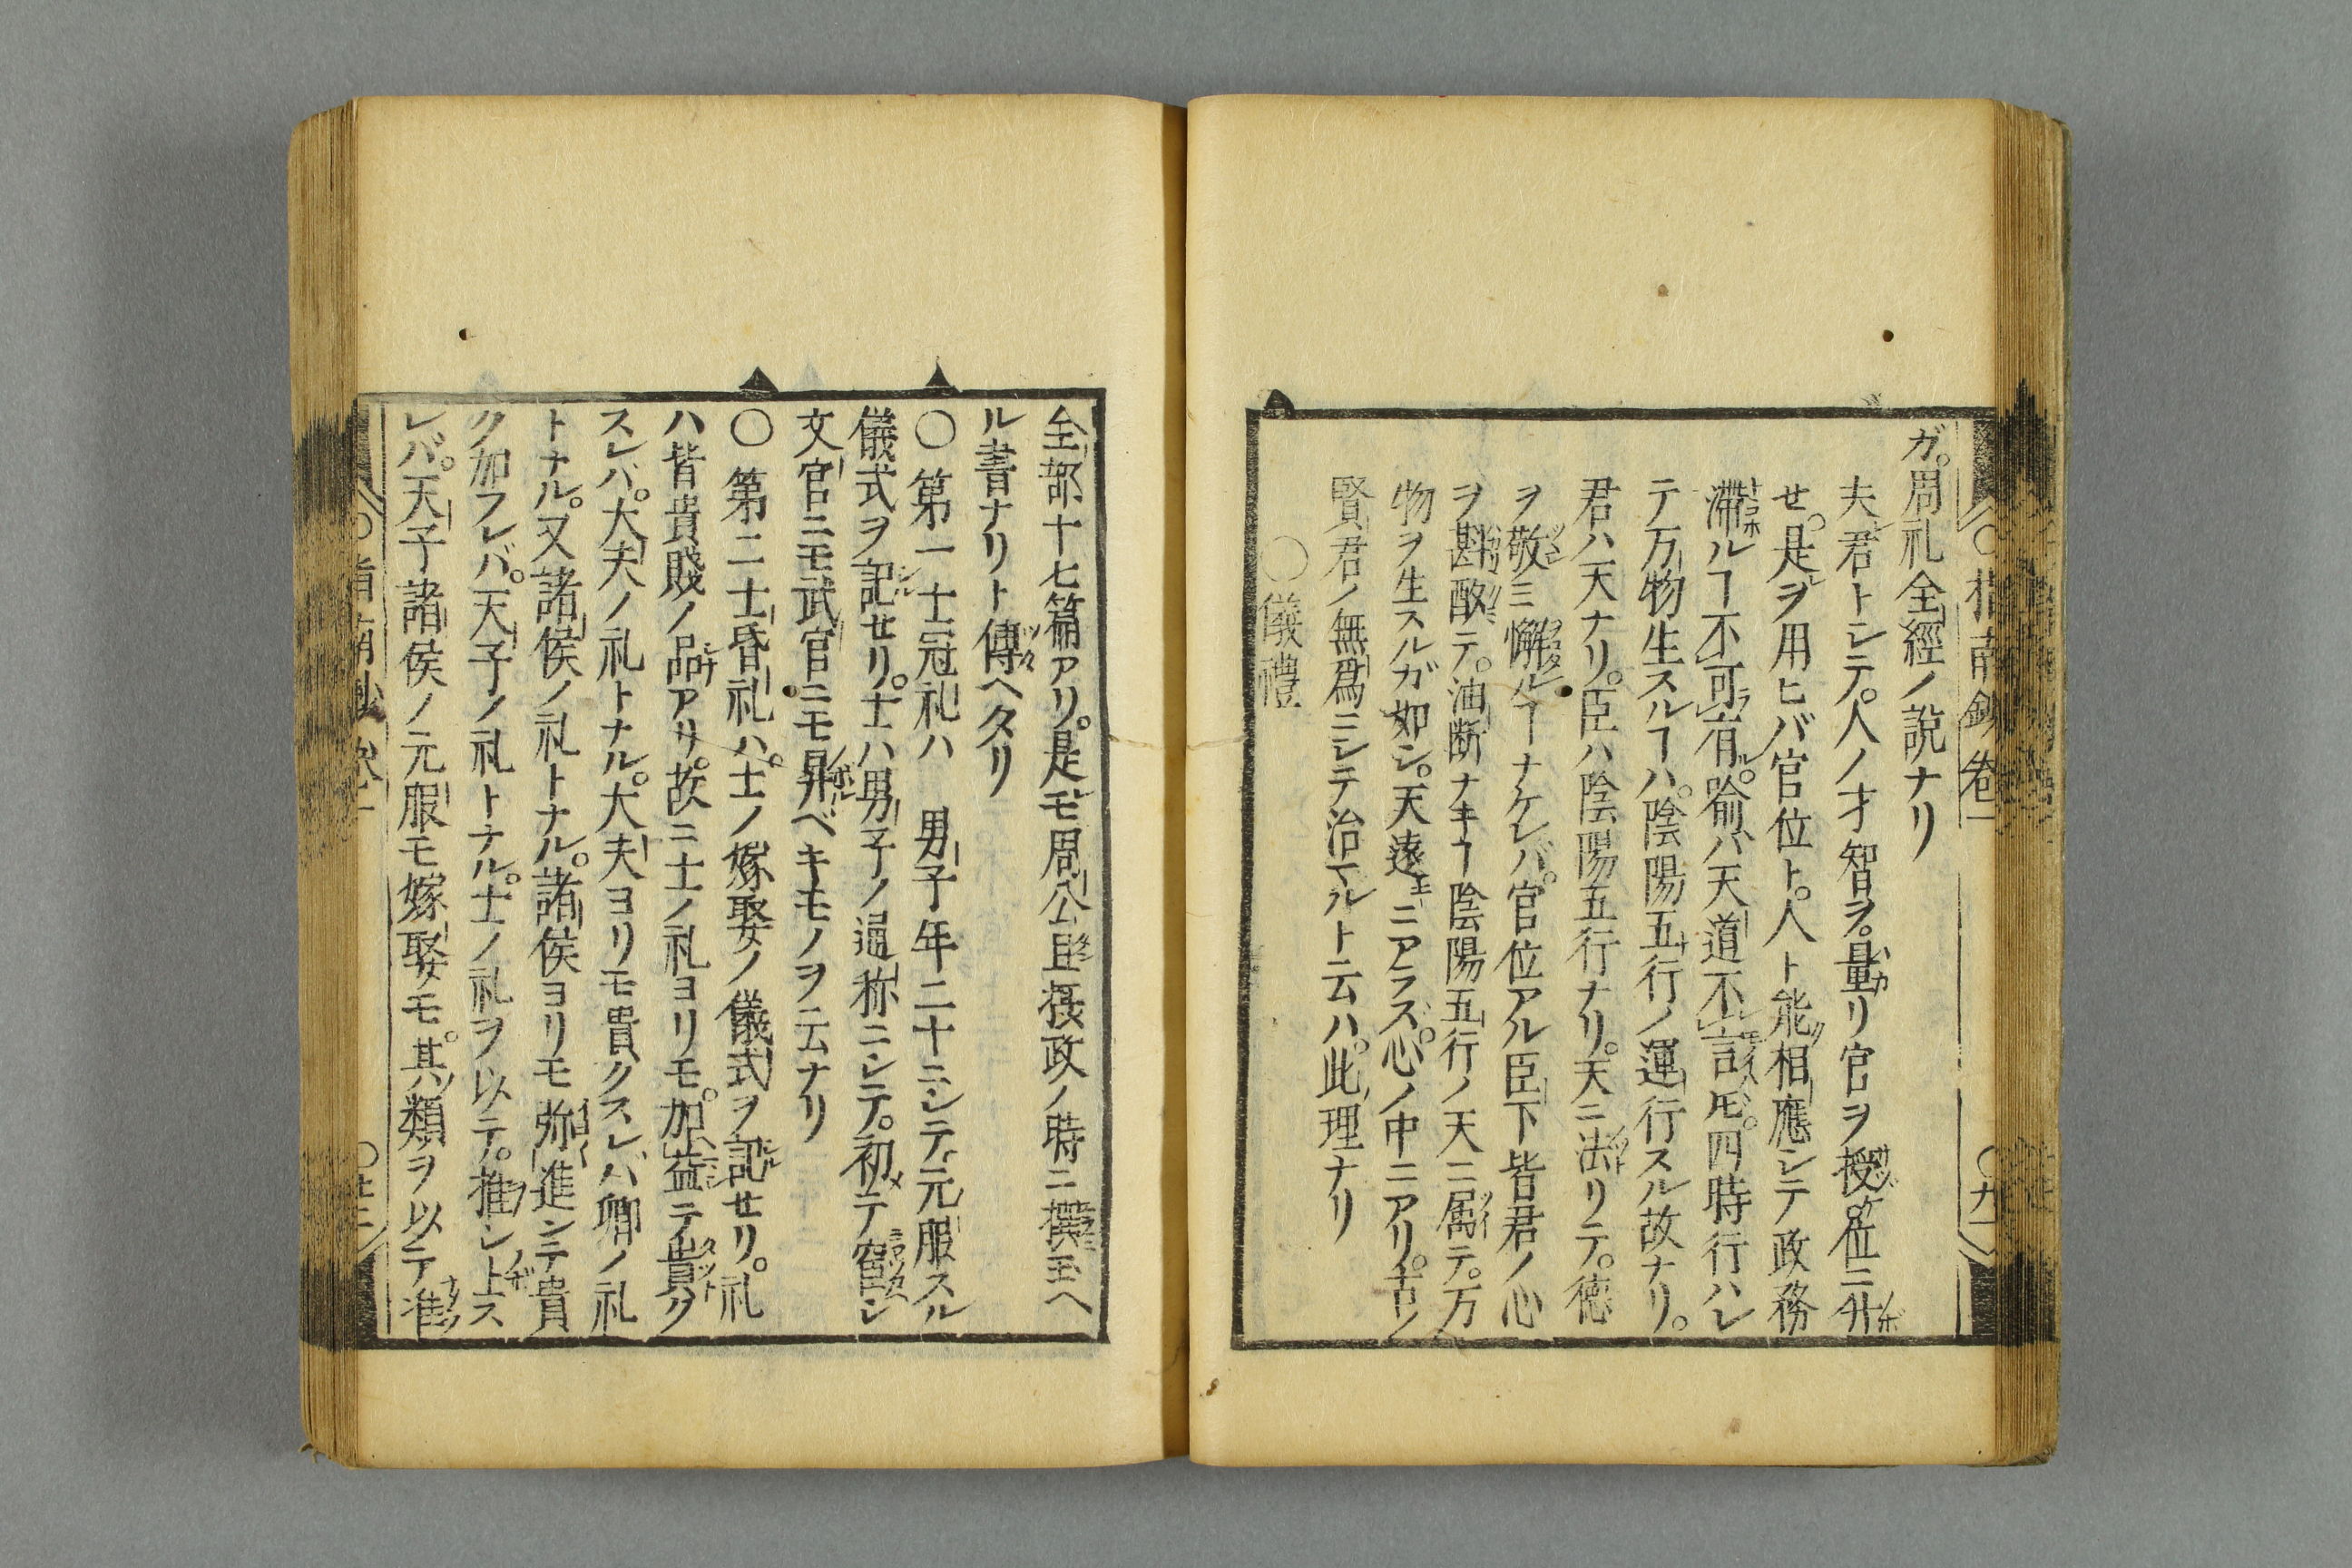 ガ。周礼全經ノ說ナリ
夫君トシテ。人ノ才智ヲ。量リ官ヲ授ケ。位ニ升
セ。是ヲ用ヒバ官位ト。人ト能相應シテ政務
滯ルヿ不可有。喻ハ天道不言𪜈。四時行ハレ
テ万物生スルヿハ。陰陽五行ノ運行スル故ナリ。
君ハ天ナリ。臣ハ陰陽五行ナリ。天ニ法リテ。徳
ヲ敬ミ懈ルヿナケレバ。官位アル臣下皆君ノ心
ヲ斟酌テ。油断ナキヿ陰陽五行ノ天ニ属テ。万
物ヲ生スルガ如シ。天遠ニアラズ。心ノ中ニアリ。古ノ
賢君ノ無爲ニシテ治マルト云ハ。此理ナリ
〇儀禮
全部十七篇アリ。是モ周公旦摂政ノ時ニ撰玉ヘ
ル書ナリト傳ヘタリ
〇第一士冠礼ハ 男子年二十ニシテ元服スル
儀式ヲ記セリ。士ハ男子ノ通称ニシテ。初テ宦シ
文官ニモ武官ニモ昇ベキモノヲ云ナリ
〇第二士昏礼ハ。士ノ嫁娶ノ儀式ヲ記セリ。礼
ハ皆貴賤ノ品アリ。故ニ士ノ礼ヨリモ。加益テ貴ク
スレバ。大夫ノ礼トナル。大夫ヨリモ貴クスレバ卿ノ礼
トナル。又諸侯ノ礼トナル。諸侯ヨリモ弥進シテ貴
ク加フレバ。天子ノ礼トナル。士ノ礼ヲ以テ。推シ上ス
レバ。天子諸侯ノ元服モ嫁娶モ。其類ヲ以テ准
〇指南鈔卷一
〇九一